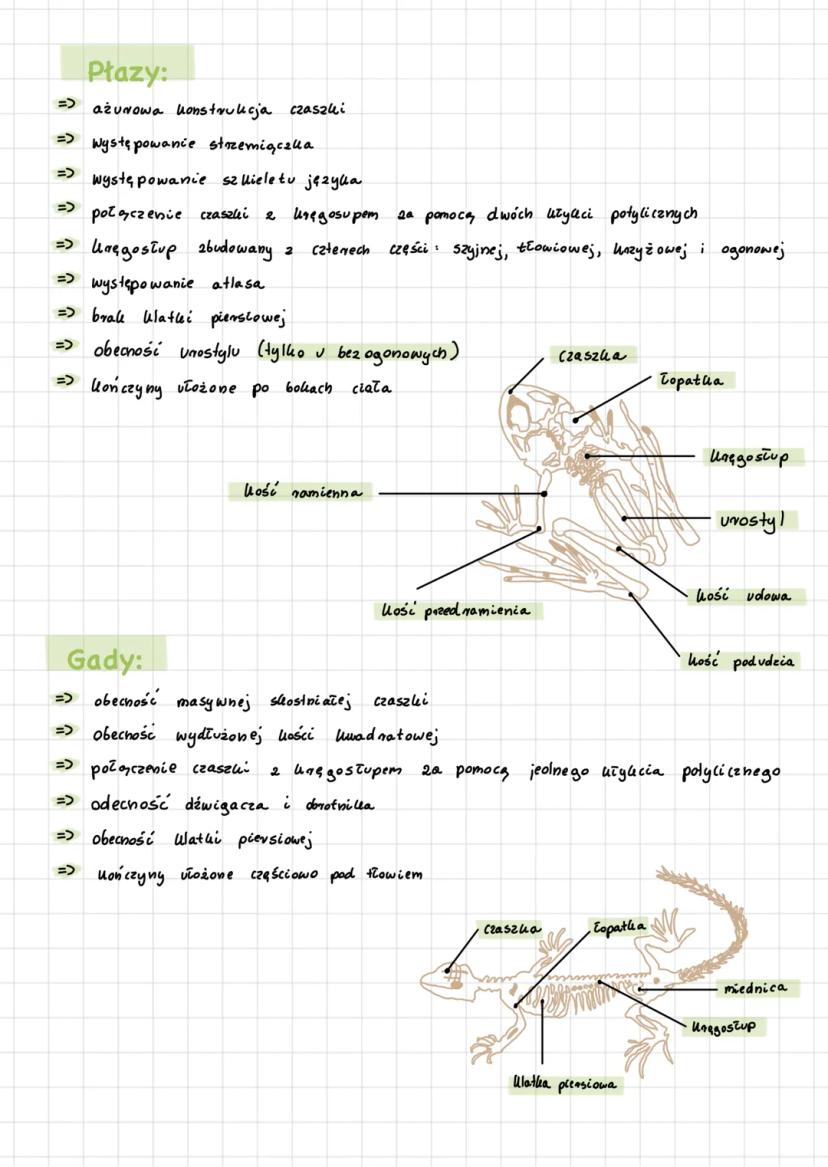 Płazy:
=> ażurowa konstrukcja czaszki
=> występowanie strzemiączka
=> występowanie szkieletu języka
=> połączenie czaszki z kręgosupem za pomocą dwóch kłykci potylicznych
=> kręgosłup zbudowany z czterech części: szyjnej, tłowiowej, krzyżowej i ogonowej
=> występowanie atlasa
=> brak klatki piersiowej
=> obecność urostylu (tylko u bezogonowych)
=> kończyny ułożone po bokach ciała
czaszka
łopatka
kręgosłup
kość ramienna
urostyl
kość udowa
kość przedramienia
kość podudzia
Gady:
=> obecność masywnej skostniałej czaszki
=> obecność wydłużonej kości kwadratowej
=> połączenie czaszki z kręgostupem za pomocą jednego kłykcia potylicznego
=> odecność dźwigacza i obrotnika
=> obecność klatki piersiowej
=> kończyny ułożone częściowo pod tłowiem
czaszka
łopatka
miednica
kręgosłup
klatka piersiowa